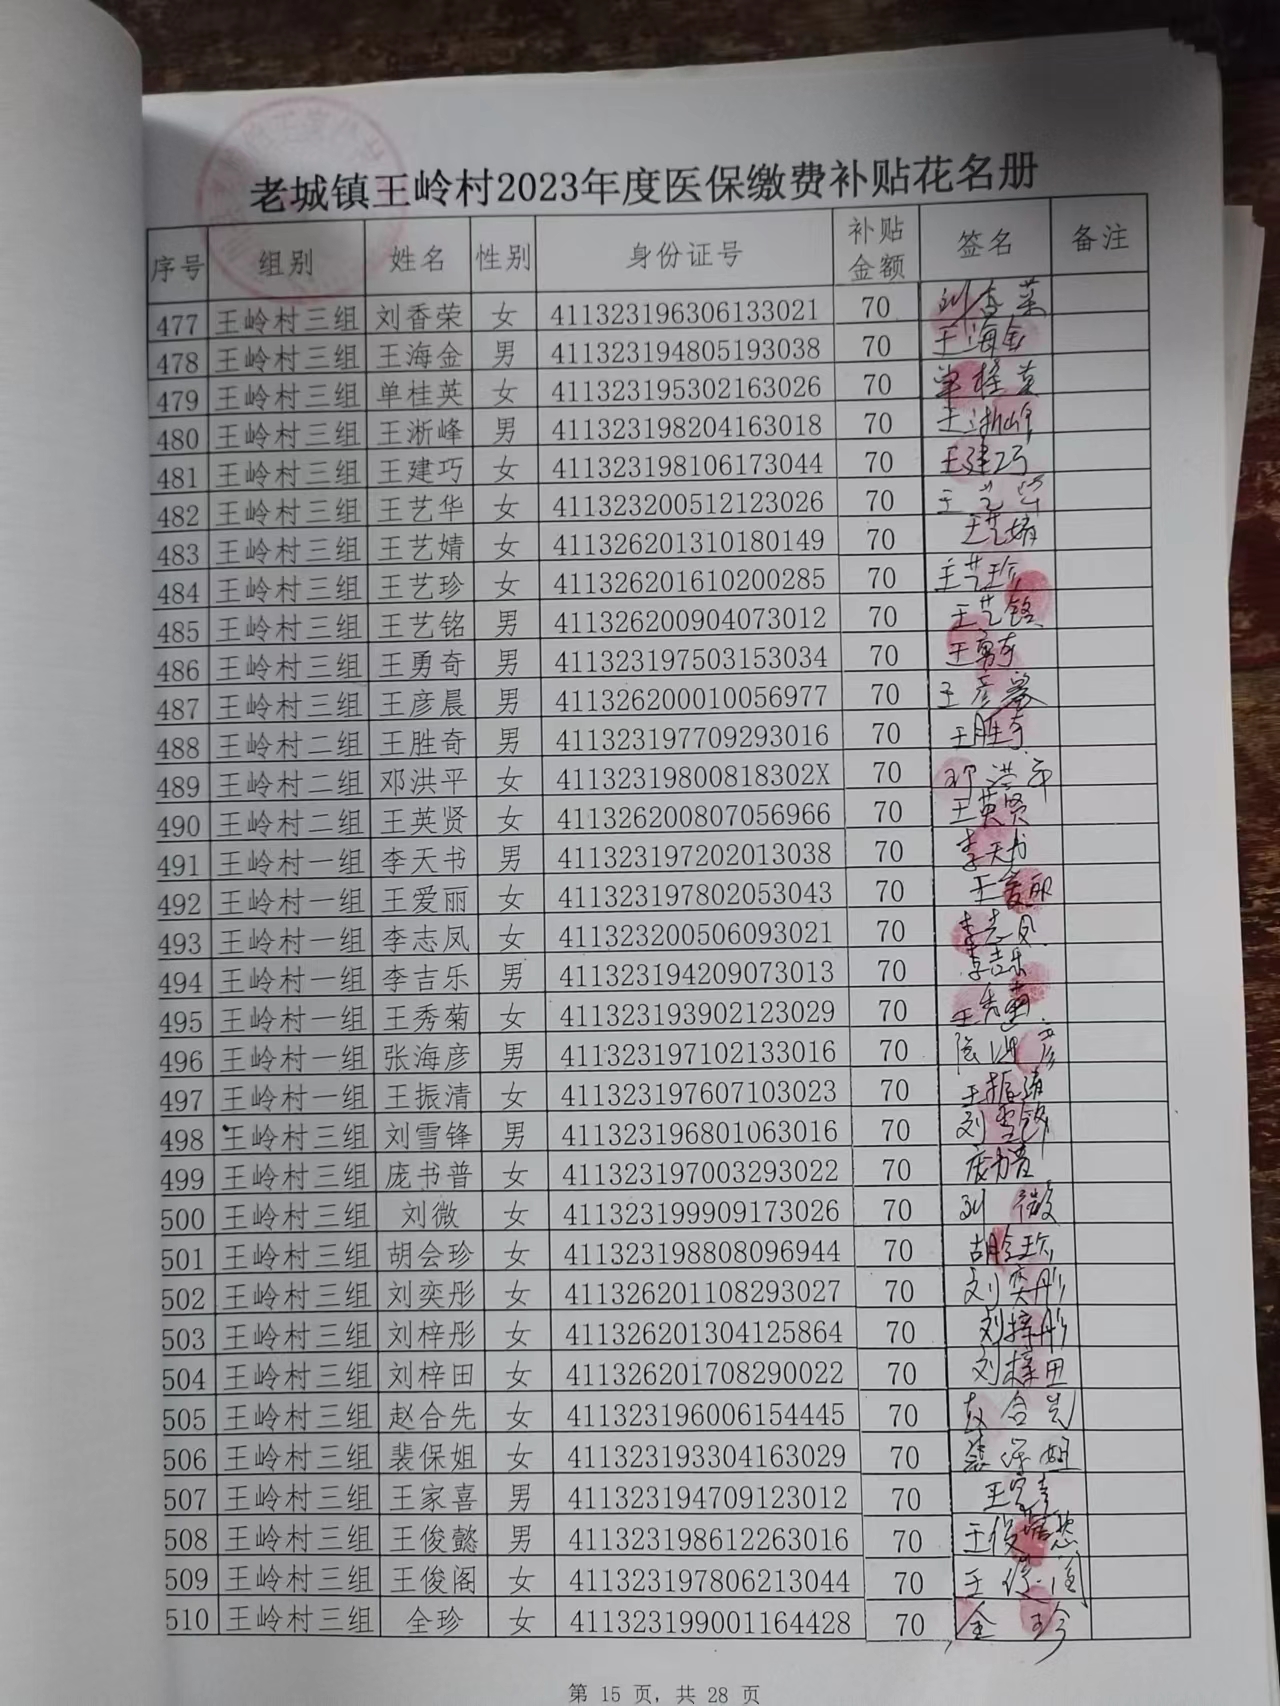 老城镇王岭村2023年度医保缴费补贴花名册
序号 组别 姓名 性别 身份证号 补贴金额 签名 备注
477 王岭村三组 刘香荣 女 411323196306133021 70 刘香荣
478 王岭村三组 王海金 男 411323194805193038 70 王海金
479 王岭村三组 单桂英 女 411323195302163026 70 单桂英
480 王岭村三组 王淅峰 男 411323198204163018 70 王淅峰
481 王岭村三组 王建巧 女 411323198106173044 70 王建巧
482 王岭村三组 王艺华 女 411323200512123026 70 王艺华
483 王岭村三组 王艺婧 女 411326201310180149 70 王艺婧
484 王岭村三组 王艺珍 女 411326201610200285 70 王艺珍
485 王岭村三组 王艺铭 男 411326200904073012 70 王艺铭
486 王岭村三组 王勇奇 男 411323197503153034 70 王勇奇
487 王岭村三组 王彦晨 男 411326200010056977 70 王彦
488 王岭村二组 王胜奇 男 411323197709293016 70 王胜奇
489 王岭村二组 邓洪平 女 41132319800818302X 70 邓洪平
490 王岭村二组 王英贤 女 411326200807056966 70 王英贤
491 王岭村一组 李天书 男 411323197202013038 70 李天书
492 王岭村一组 王爱丽 女 411323197802053043 70 王爱丽
493 王岭村一组 李志凤 女 411323200506093021 70 李志凤
494 王岭村一组 李吉乐 男 411323194209073013 70 李吉乐
495 王岭村一组 王秀菊 女 411323193902123029 70 王秀菊
496 王岭村一组 张海彦 男 411323197102133016 70 张海彦
497 王岭村一组 王振清 女 411323197607103023 70 王振清
498 王岭村三组 刘雪锋 男 411323196801063016 70 刘雪锋
499 王岭村三组 庞书普 女 411323197003293022 70 庞书普
500 王岭村三组 刘微 女 411323199909173026 70 刘微
501 王岭村三组 胡会珍 女 411323198808096944 70 胡会珍
502 王岭村三组 刘奕彤 女 411326201108293027 70 刘奕彤
503 王岭村三组 刘梓彤 女 411326201304125864 70 刘梓彤
504 王岭村三组 刘梓田 女 411326201708290022 70 刘梓田
505 王岭村三组 赵合先 女 411323196006154445 70 赵合先
506 王岭村三组 裴保姐 女 411323193304163029 70 裴保姐
507 王岭村三组 王家喜 男 411323194709123012 70 王家喜
508 王岭村三组 王俊懿 男 411323198612263016 70 王俊懿
509 王岭村三组 王俊阁 女 411323197806213044 70 王俊阁
510 王岭村三组 全珍 女 411323199001164428 70 全珍
第 15 页, 共 28 页